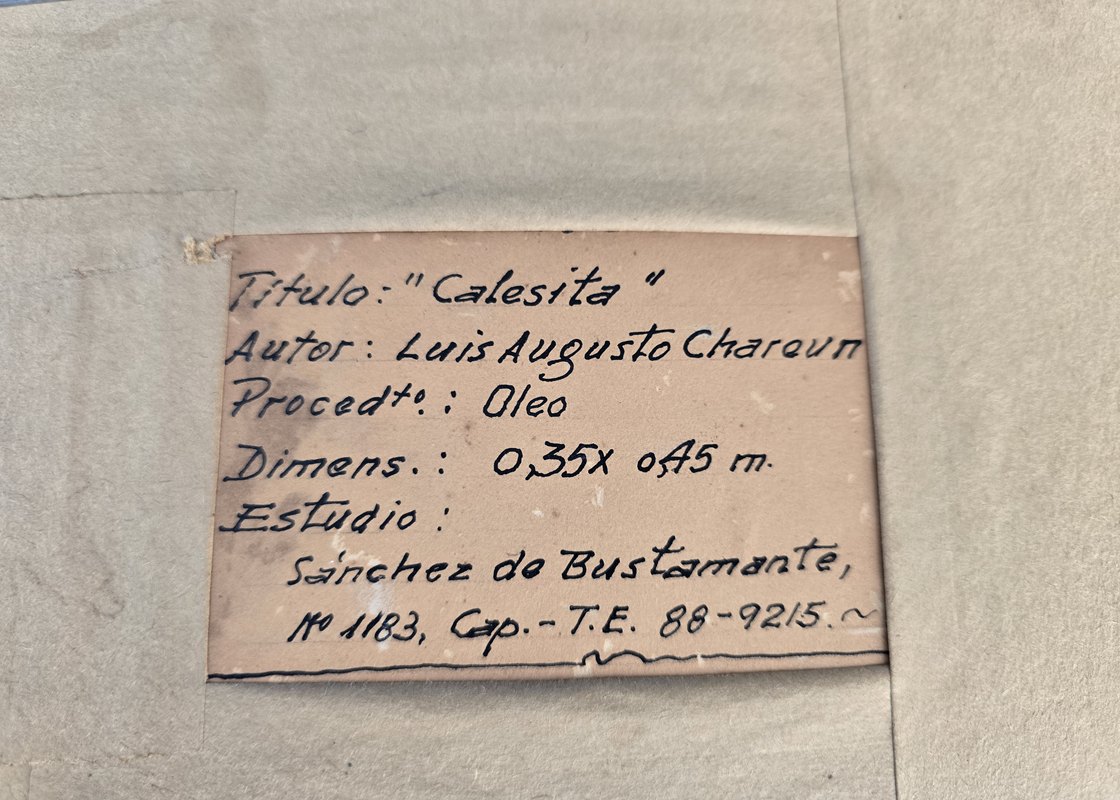 Título: "Calesita"
Autor: Luis Augusto Chareun
Procedto.: Oleo
Dimens.: 0,35x 0,45 m.
Estudio:
Sánchez de Bustamante,
Nº 1183, Cap.- T.E. 88-9215.~